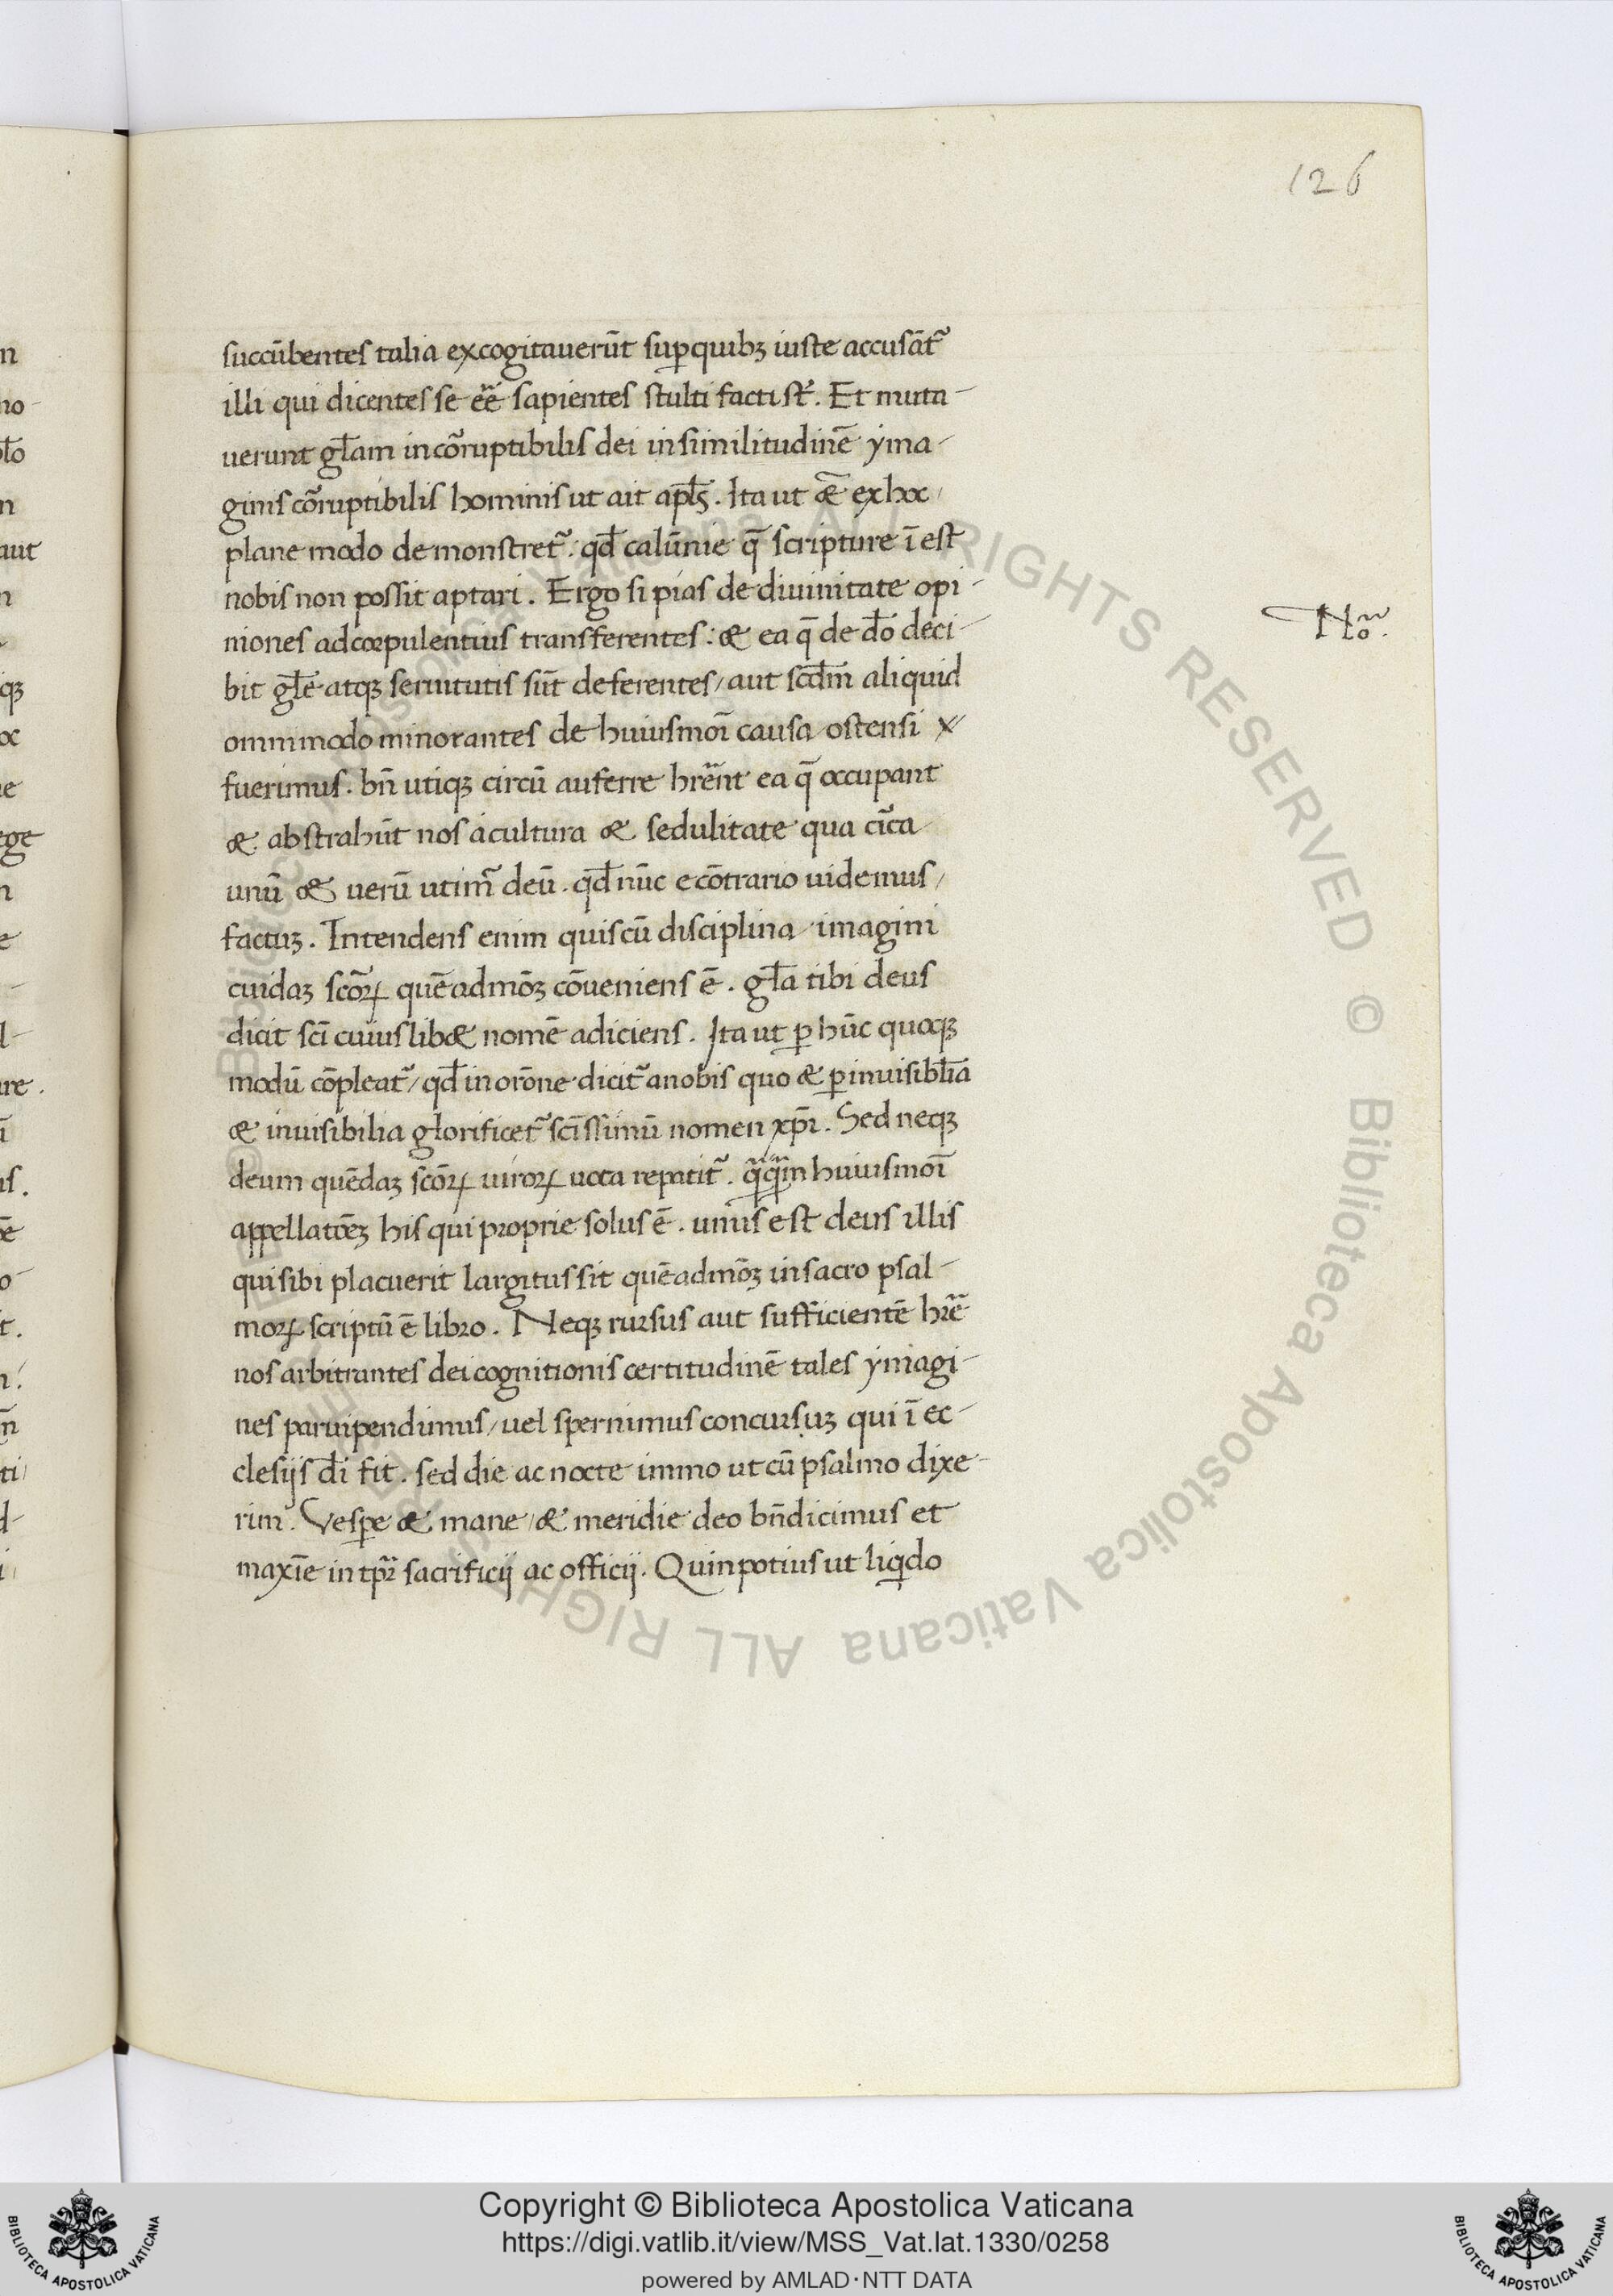 126
succūbentes talia excogitauerūt sup quibꝫ iuste accusāt᷑
illi qui dicentes se eē sapientes stulti facti st̄. Et muta-
uerunt gl̄am incōruptibilis dei in similitudinē yma-
ginis cōruptibilis hominis ut ait apl̄s. Ita ut & ex hoc
plane modo demonstret᷑. qd̄ calūnie q̄ scripture ī est
nobis non possit aptari. Ergo si pias de diuinitate opi-
niones ad corpulentius transferentes: & ea q̄ de d̄o deci-
No.
bit gl̄e atqꝫ seruitutis sūt deferentes/ aut scd̄m aliquid
omnimodo minorantes de huiusmoī causa ostensi x
fuerimus. bn̄ utiqꝫ circū auferre hr̄ent ea q̄ occupant
& abstrahūt nos a cultura & sedulitate qua cīca
unū & uerū utim᷑ deū. qd̄ nūc econtrario uidemus/
factuꝫ. Intendens enim quis cū disciplina imagini
cuidaꝫ scōꝝ quēadmōꝫ cōueniens ē. gl̄a tibi deus
dicit scī cuiuslib& nomē adiciens. Ita ut ꝑ hūc quoqꝫ
modū cōpleat᷑/ qd̄ in orōne dicit᷑ a nobis quo & ꝑ inuisibl̄ia
& inuisibilia glorificet᷑ scīssimū nomen xp̄ı. Sed neqꝫ
deum quēdaꝫ scōꝝ uiroꝝ uota repatit᷑. qͣqͣm huiusmoī
appellatōeꝫ his qui proprie solus ē. unus est deus illis
qui sibi placuerit largitus sit quēadmōꝫ in sacro psal-
moꝝ scriptū ē libro. Neqꝫ rursus aut sufficientē hr̄e
nos arbitrantes dei cognitionis certitudinē tales ymagi-
nes paruipendimus/ uel spernimus concursuꝫ qui ī ec-
clesijs dī fit. sed die ac nocte immo ut cū psalmo dixe-
rim. Vesꝑe & mane/ & meridie deo bn̄dicimus et
maxīe in tp̄r sacrificij ac officij. Quin potius ut liqdo
Copyright © Biblioteca Apostolica Vaticana
https://digi.vatlib.it/view/MSS_Vat.lat.1330/0258
powered by AMLAD·NTT DATA
BIBLIOTECA APOSTOLICA VATICANA
BIBLIOTECA APOSTOLICA VATICANA